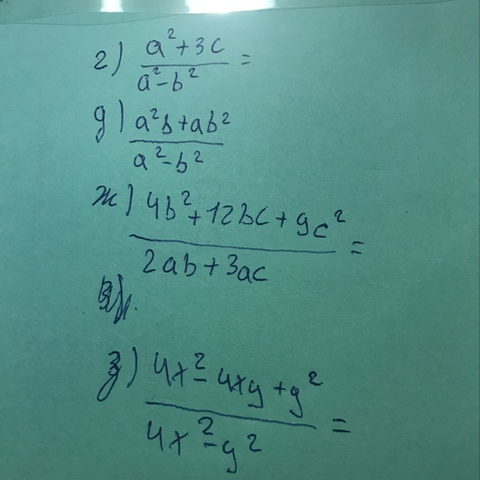 г) a²+3c / a²-b² =
д) a²b+ab² / a²-b²
ж) 4b²+12bc+9c² / 2ab+3ac =
з) 4x²-4xy+y² / 4x²-y² =